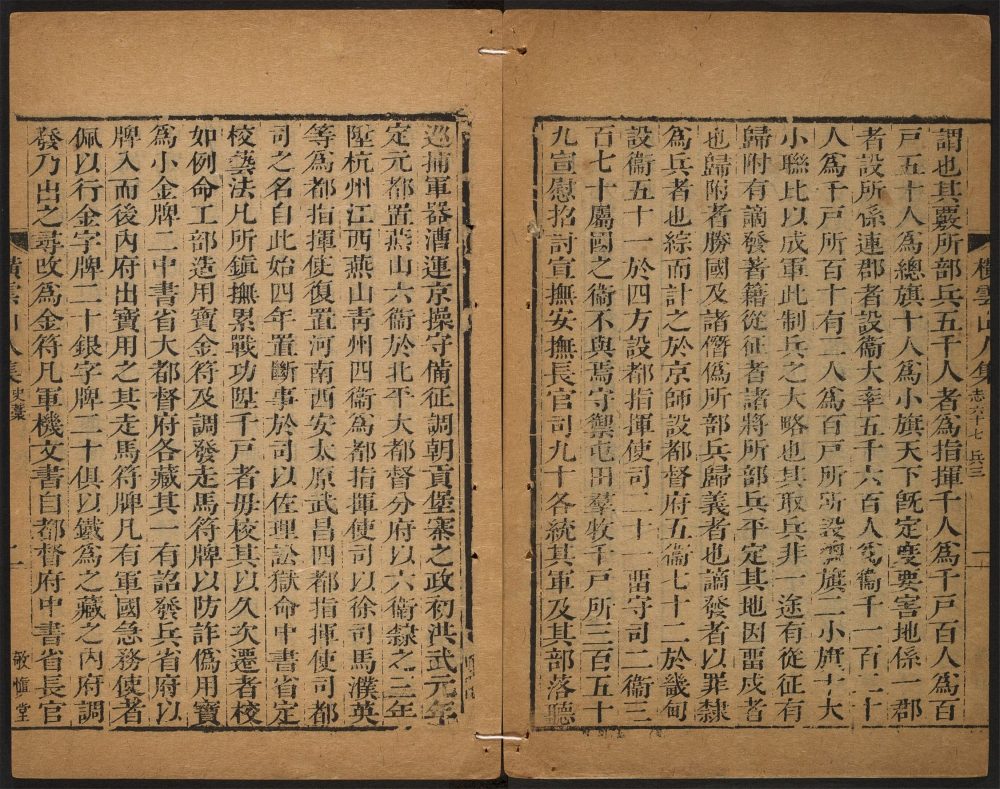 橫雲山人集 志六十七 兵三
謂也其覈所部兵五千人者為指揮千人為千戶百人為百
戶五十人為總旗十人為小旗天下既定度要害地係一郡
者設所係連郡者設衞大率五千六百人為衞千一百二十
人為千戶所百十有二人為百戶所所設總旗二小旗十大
小聯比以成軍此制兵之大略也其取兵非一途有從征有
歸附有謫發著籍從征者諸將所部兵平定其地因畱戍者
也歸附者勝國及諸僭偽所部兵歸義者也謫發者以罪隸
為兵者也綜而計之於京師設都督府五衞七十二於畿甸
設衞五十一於四方設都指揮使司二十一畱守司二衞三
百七十屬國之衞不與焉守禦屯田羣牧千戶所三百五十
九宣慰招討宣撫安撫長官司九十各統其軍及其部落聽
巡捕軍器漕運京操守備征調朝貢堡寨之政初洪武元年
定元都置燕山六衞於北平大都督分府以六衞隸之三年
陞杭州江西燕山靑州四衞為都指揮使司以徐司馬濮英
等為都指揮使復置河南西安太原武昌四都指揮使司都
司之名自此始四年置斷事於司以佐理訟獄命中書省定
校藝法凡所鎭撫累戰功陞千戶者毋核其以久次遷者校
如例命工部造用寶金符及調發走馬符牌以防詐偽用寶
為小金牌二中書省大都督府各藏其一有詔發兵省府以
牌入而後內府出寶用之其走馬符牌凡有軍國急務使者
佩以行金字牌二十銀字牌二十俱以鐵為之藏之內府調
發乃出之尋改為金符凡軍機文書自都督府中書省長官
橫雲山人集 史藁 二 敬愼堂